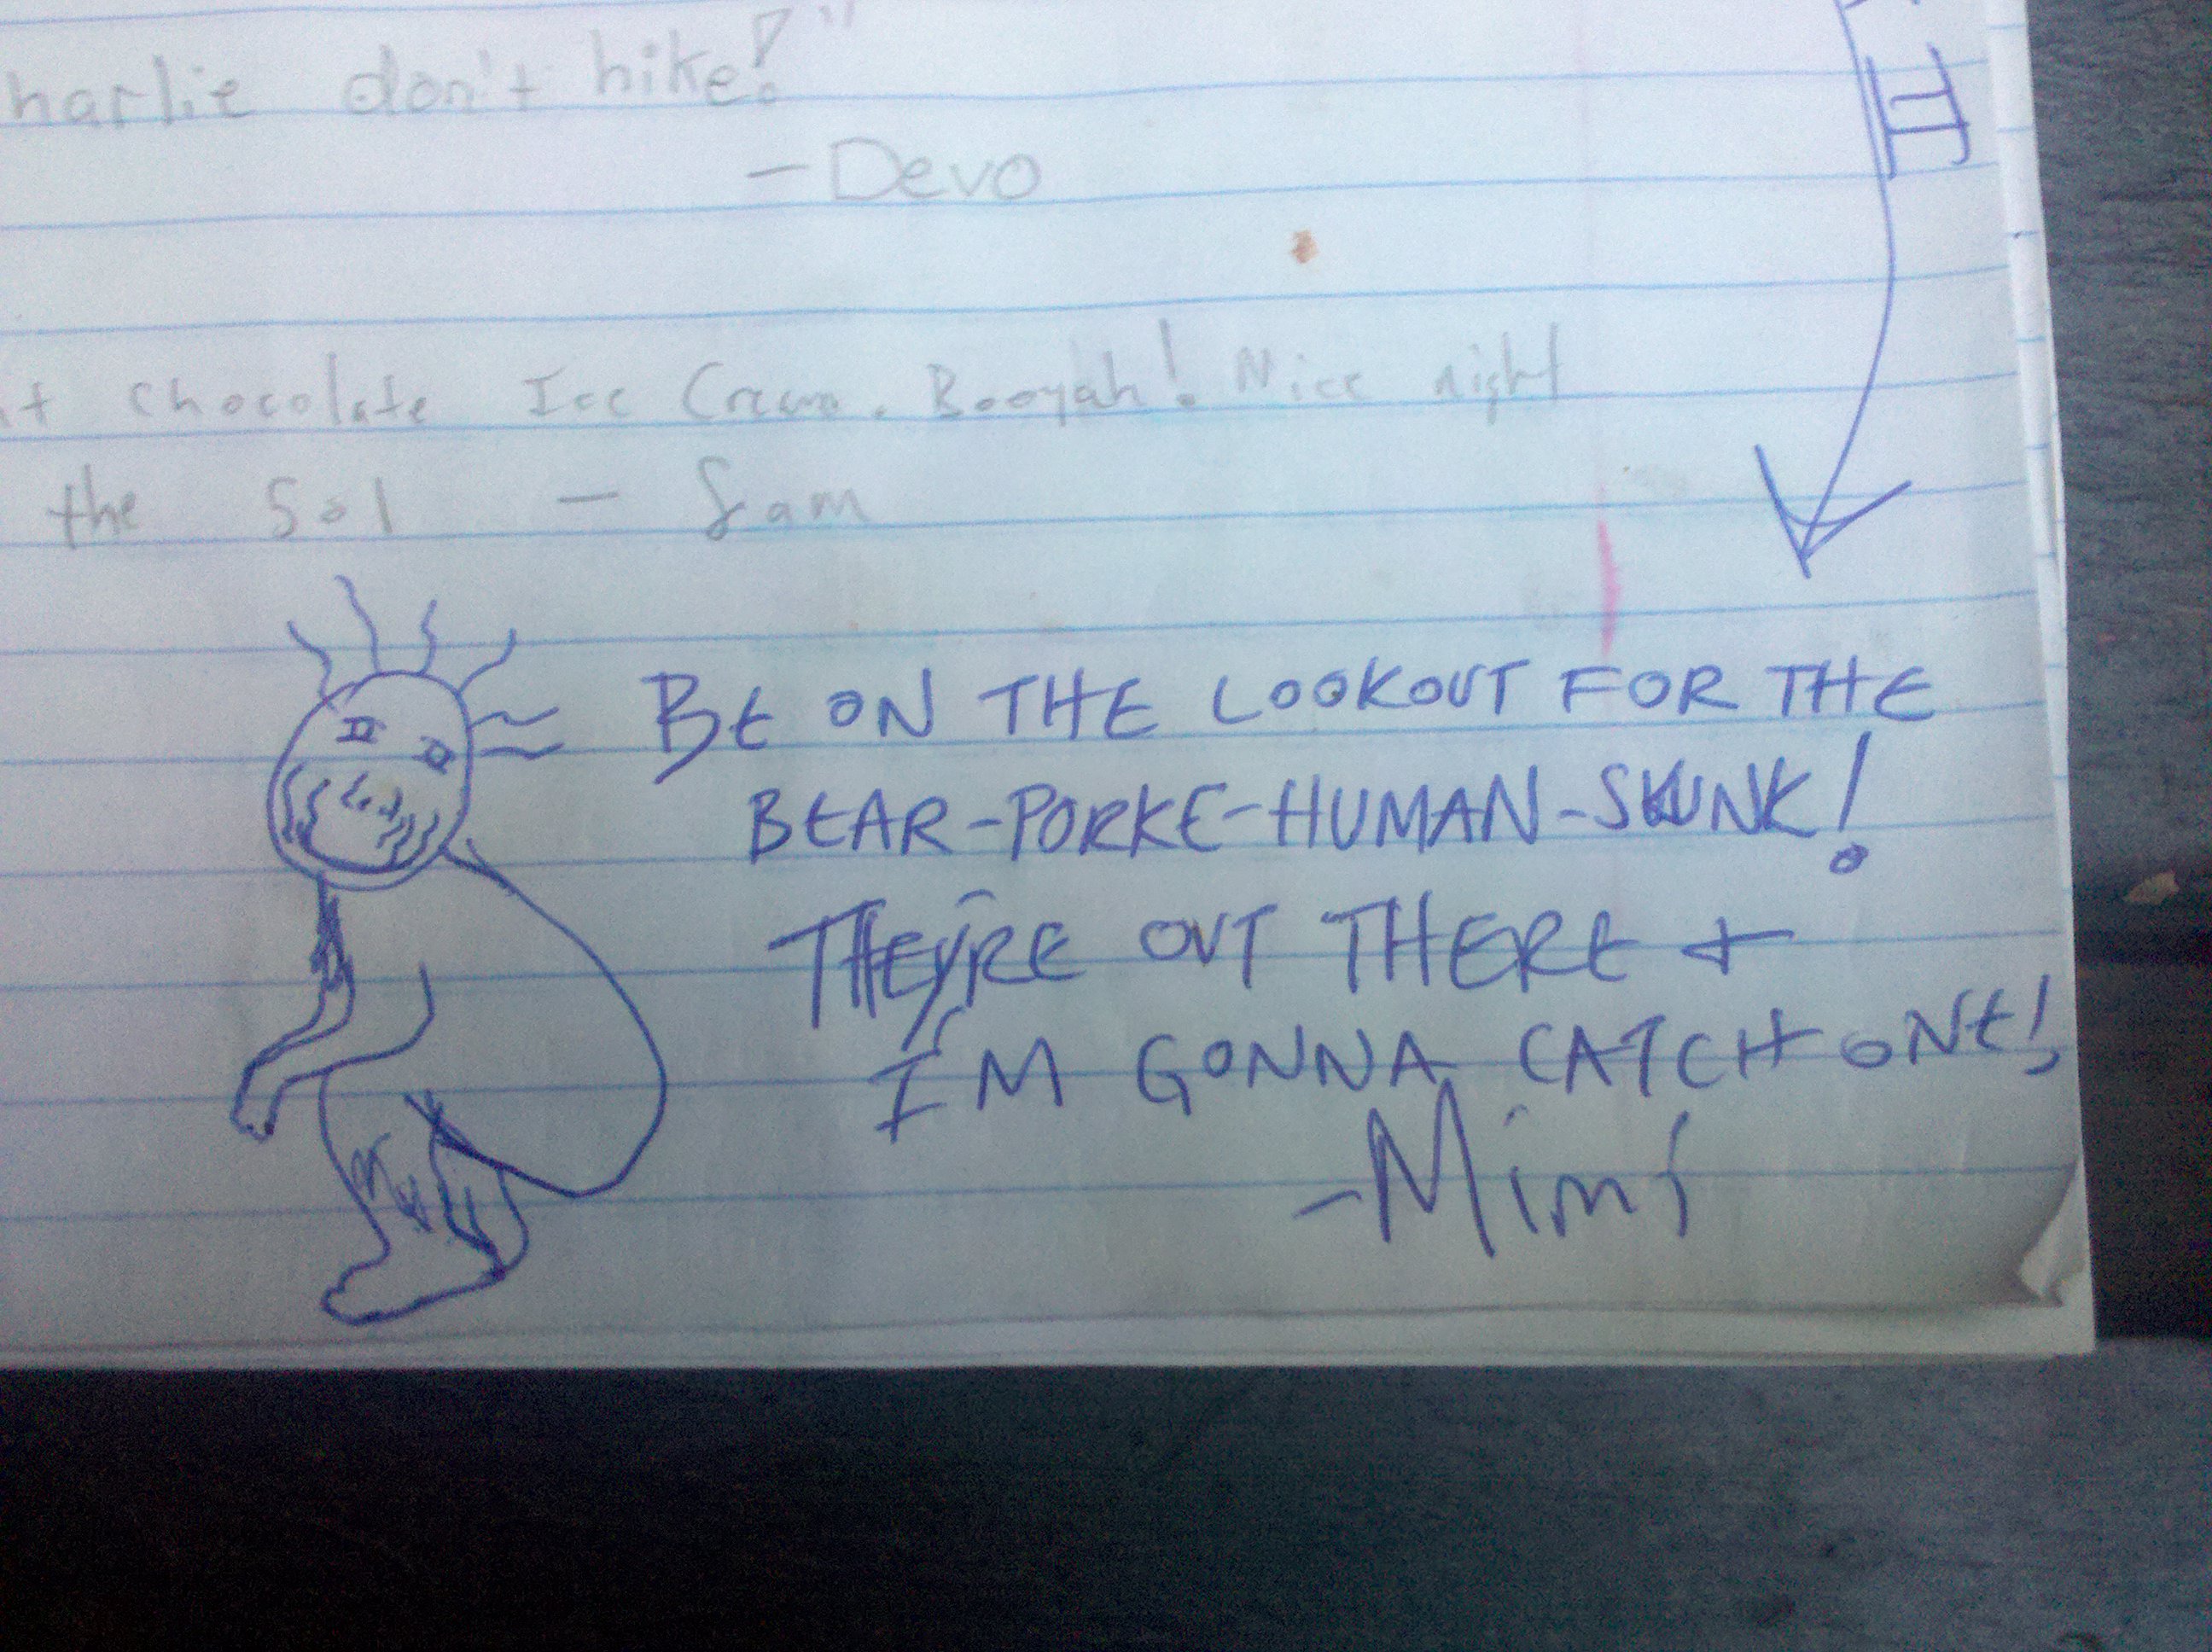 harlie don't hike!"
- Devo
II
nt chocolate Ice Cream. Booyah! Nice night
the Sol - Sam
BE ON THE LOOKOUT FOR THE
BEAR-PORKE-HUMAN-SKUNK!
THEY'RE OUT THERE +
I'M GONNA CATCH ONE!
-Mimi